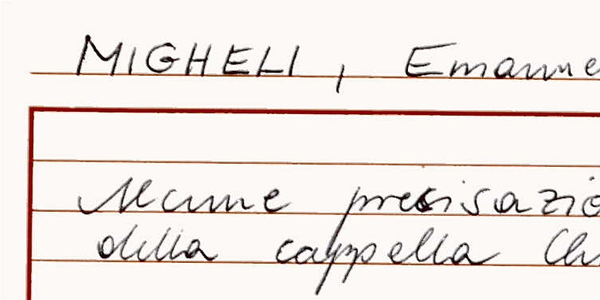 MIGHELI, Emanue
Alcune precisazio
della cappella Ch